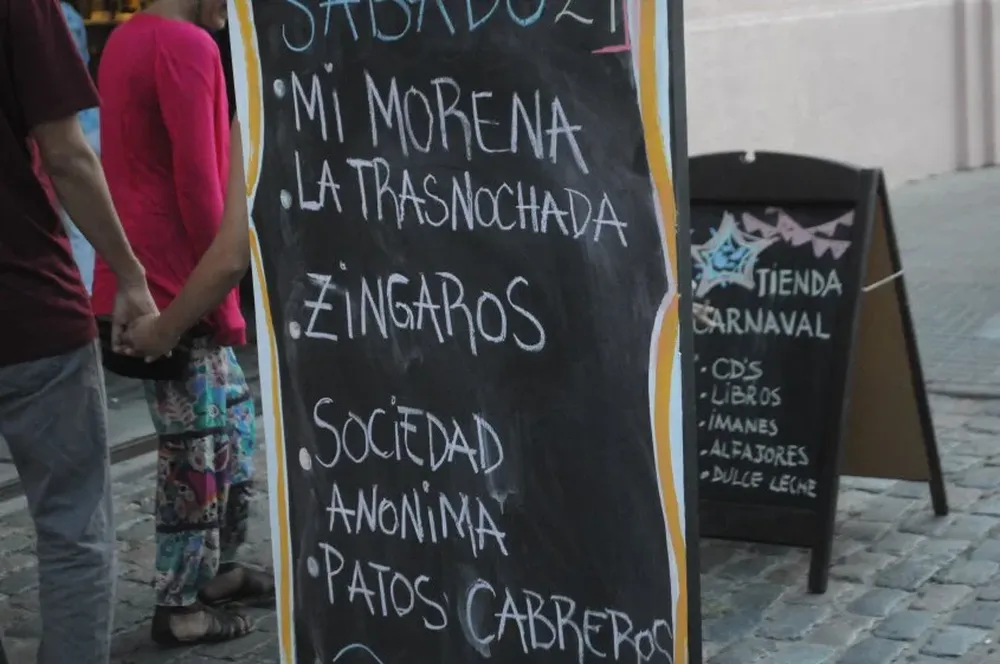 SÁBADO 21
• Mi MORENA
• LA TRASNOCHADA
• ZiNGAROS
• SOCiEDAD
ANONiMA
• PATOS CABREROS
TiENDA
CARNAVAL
• CD'S
• LiBROS
• iMANES
• ALFAJORES
• DULCE LECHE